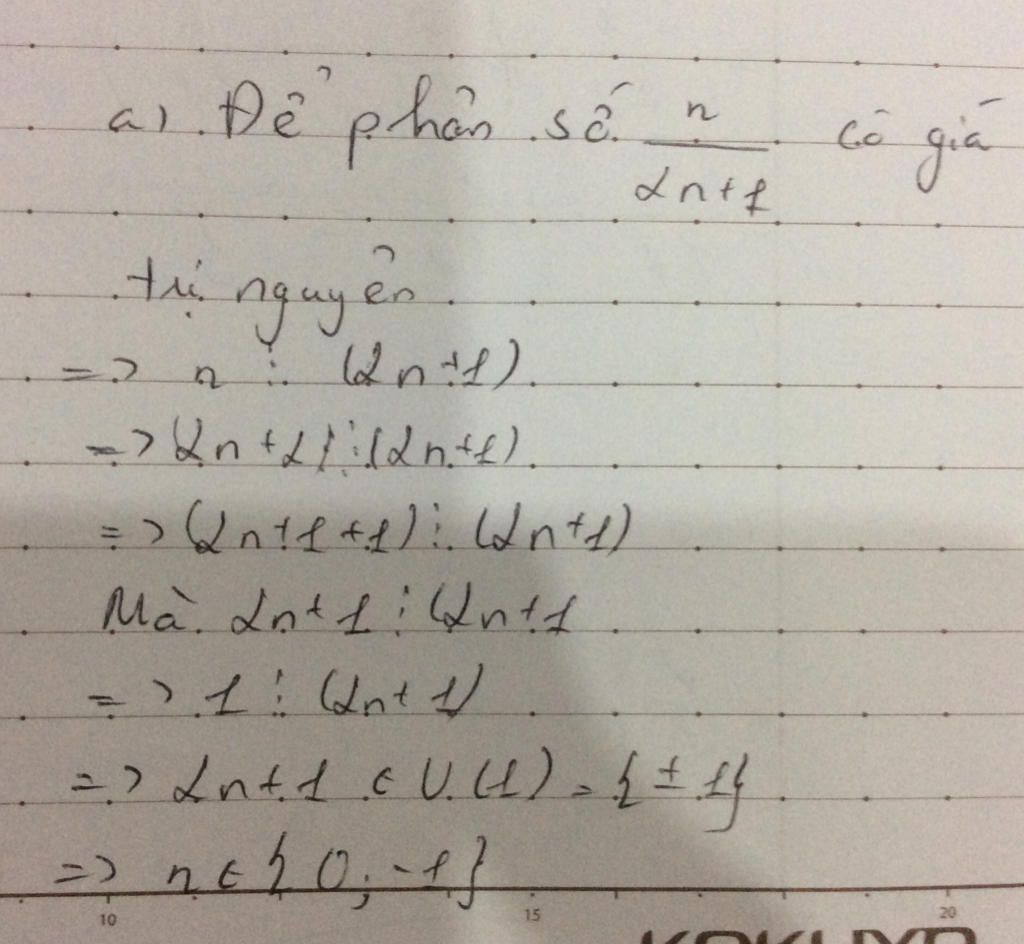 a) Để phân số n/2n+1 có giá
trị nguyên
=> n ⋮ (2n+1)
=> (2n+2) ⋮ (2n+1)
=> (2n+1+1) ⋮ (2n+1)
Mà 2n+1 ⋮ (2n+1
=> 1 ⋮ (2n+1)
=> 2n+1 ∈ Ư(1) = {±1}
=> n ∈ {0; -1}
10 15 20
KOKUYO